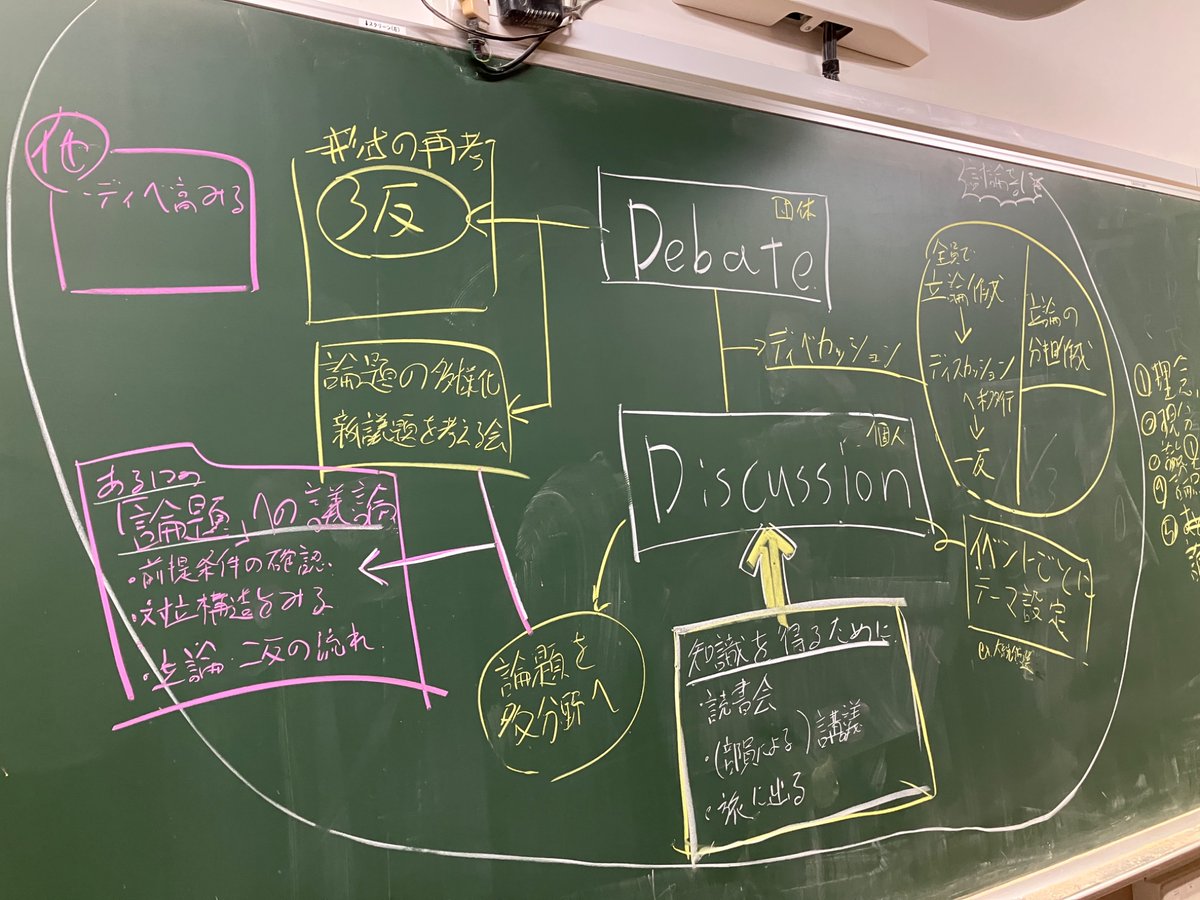 ↓スクリーン(右)
他
・ディベ高みる
形式の再考
3反
団体
Debate
論題の多様化
新議題を考える会
ディベカッション
全員で
立論作成
↓
ディスカッション
へ移行
↓
一反
立論の
分担作成
個人
Discussion
ある1つの
「論題」への議論
・前提条件の確認
・対立構造をみる
・立論 二反の流れ
論題を
多分野へ
知識を得るために
・読書会
・(部員による)講義
・旅に出る
イベントごとに
テーマ設定
①理念